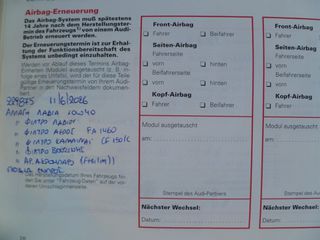 Airbag-Erneuerung
Das Airbag-System muß spätestens
14 Jahre nach dem Herstellungster-
min des Fahrzeugs¹⁾ von einem Audi-
Betrieb erneuert werden.
Der Erneuerungstermin ist zur Erhal-
tung der Funktionsbereitschaft des
Systems unbedingt einzuhalten.
Werden vor Ablauf dieses Termins Airbag-
Einheiten (Module) ausgetauscht (z. B. in-
folge eines Unfalls), wird der für diese Teile
gültige Erneuerungstermin von Ihrem Audi-
Partner in den Nachweisfeldern dokumen-
tiert.
11/6/2026
ΑΛΛΑΓΗ ΛΑΔΙΑ 10W40
" ΦΙΛΤΡΟ ΛΑΔΙΟΥ
" ΦΙΛΤΡΟ ΑΕΡΟΣ FA 1460
" ΦΙΛΤΡΟ ΚΑΜΠΙΝΑΣ
" ΦΙΛΤΡΟ ΒΕΝΖΙΝΗΣ
Das Herstellungsdatum Ihres Fahrzeugs fin-
den Sie unter "Fahrzeug-Daten" auf der vor-
deren Umschlaginnenseite.
Front-Airbag
Fahrer Beifahrer
Seiten-Airbag
Fahrerseite
vorn hinten
Beifahrerseite
vorn hinten
Kopf-Airbag
Fahrer Beifahrer
Modul ausgetauscht
am:
Stempel des Audi-Partners
Nächster Wechsel:
Datum:
Front-Airbag
Fahrer
Seiten-Airbag
Fahrerseite
vorn
Beifahrerseite
vorn
Kopf-Airbag
Fahrer
Modul ausgetauscht
am:
Stempel
Nächster Wechsel
Datum: